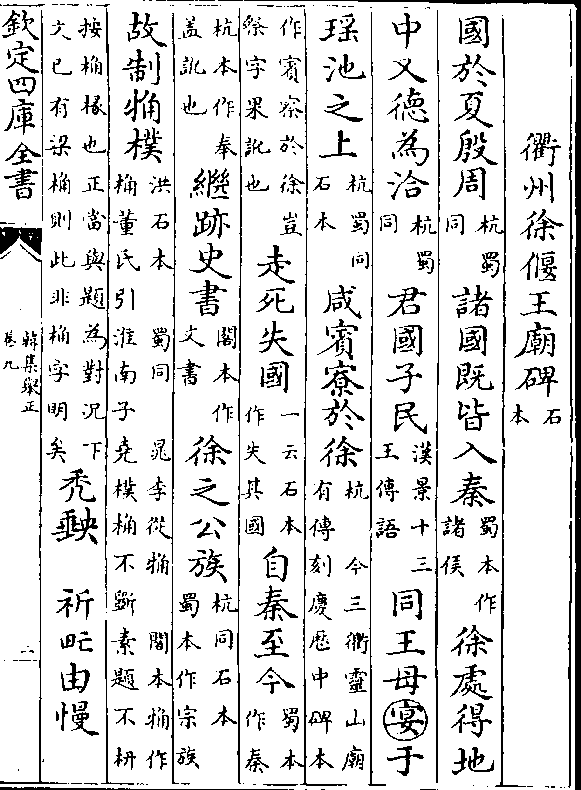 衢州徐偃王廟碑石本
國於夏殷周杭蜀同諸國既皆入秦蜀本作諸侯徐處得地
中文德為治杭蜀同君國子民漢景十三王傳語同王母宴于
瑤池之上杭蜀同石本咸賓寮於徐杭今三衢靈山廟有傳刻慶歷中碑本
作賓察於徐豈祭字果訛也走死失國一云石本作失其國自秦至今蜀本作秦
杭本作奉蓋訛也繼跡史書閣本作文書徐之公族杭同石本蜀本作宗族
故制觕樸洪石本蜀同晁李從觕閣本觕作桷董氏引淮南子堯樸桷不斵素題不枅
按桷椽也正當與題為對況下文已有梁桷則此非桷字明矣禿缺祈甿由慢
欽定四庫全書
韓集舉正
卷九
二